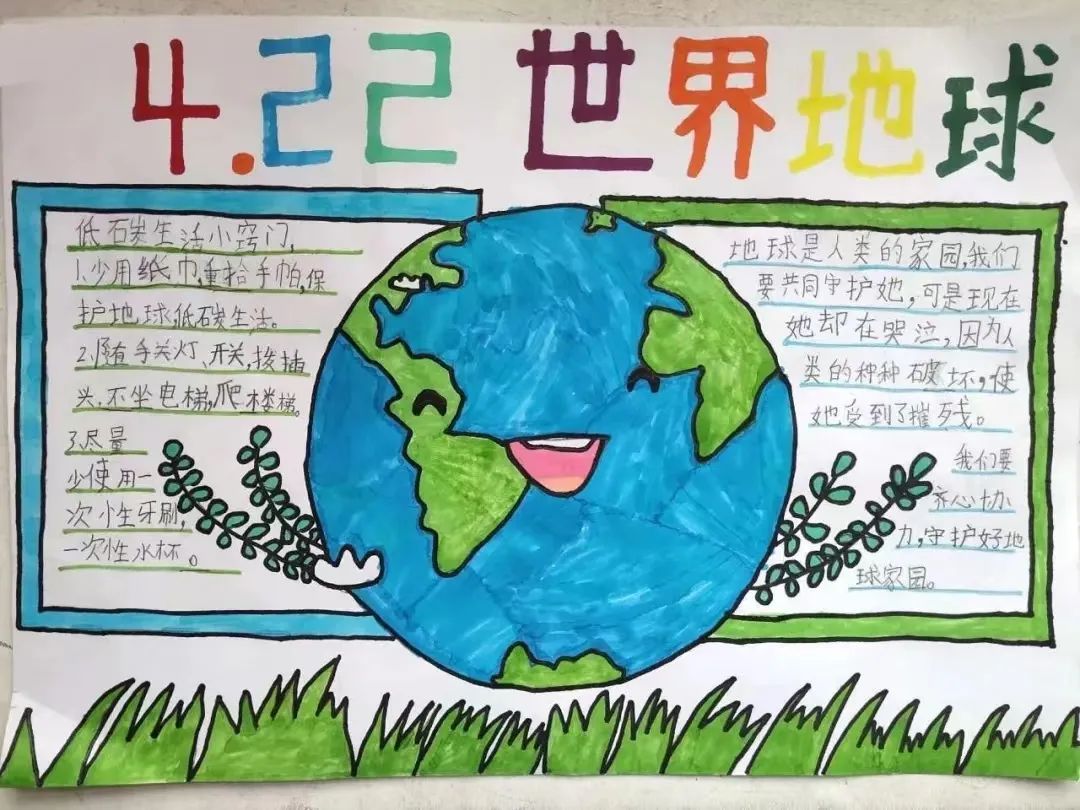 4.22 世界地球
低碳生活小窍门,
1.少用纸巾,重拾手帕,保
护地球,低碳生活。
2.随手关灯、开关,拔插
头,不坐电梯,爬楼梯。
3.尽量
少使用一
次性牙刷,
一次性水杯。
地球是人类的家园,我们
要共同守护她,可是现在
她却在哭泣,因为人
类的种种破坏,使
她受到了摧残。
我们要
齐心协
力,守护好地
球家园。